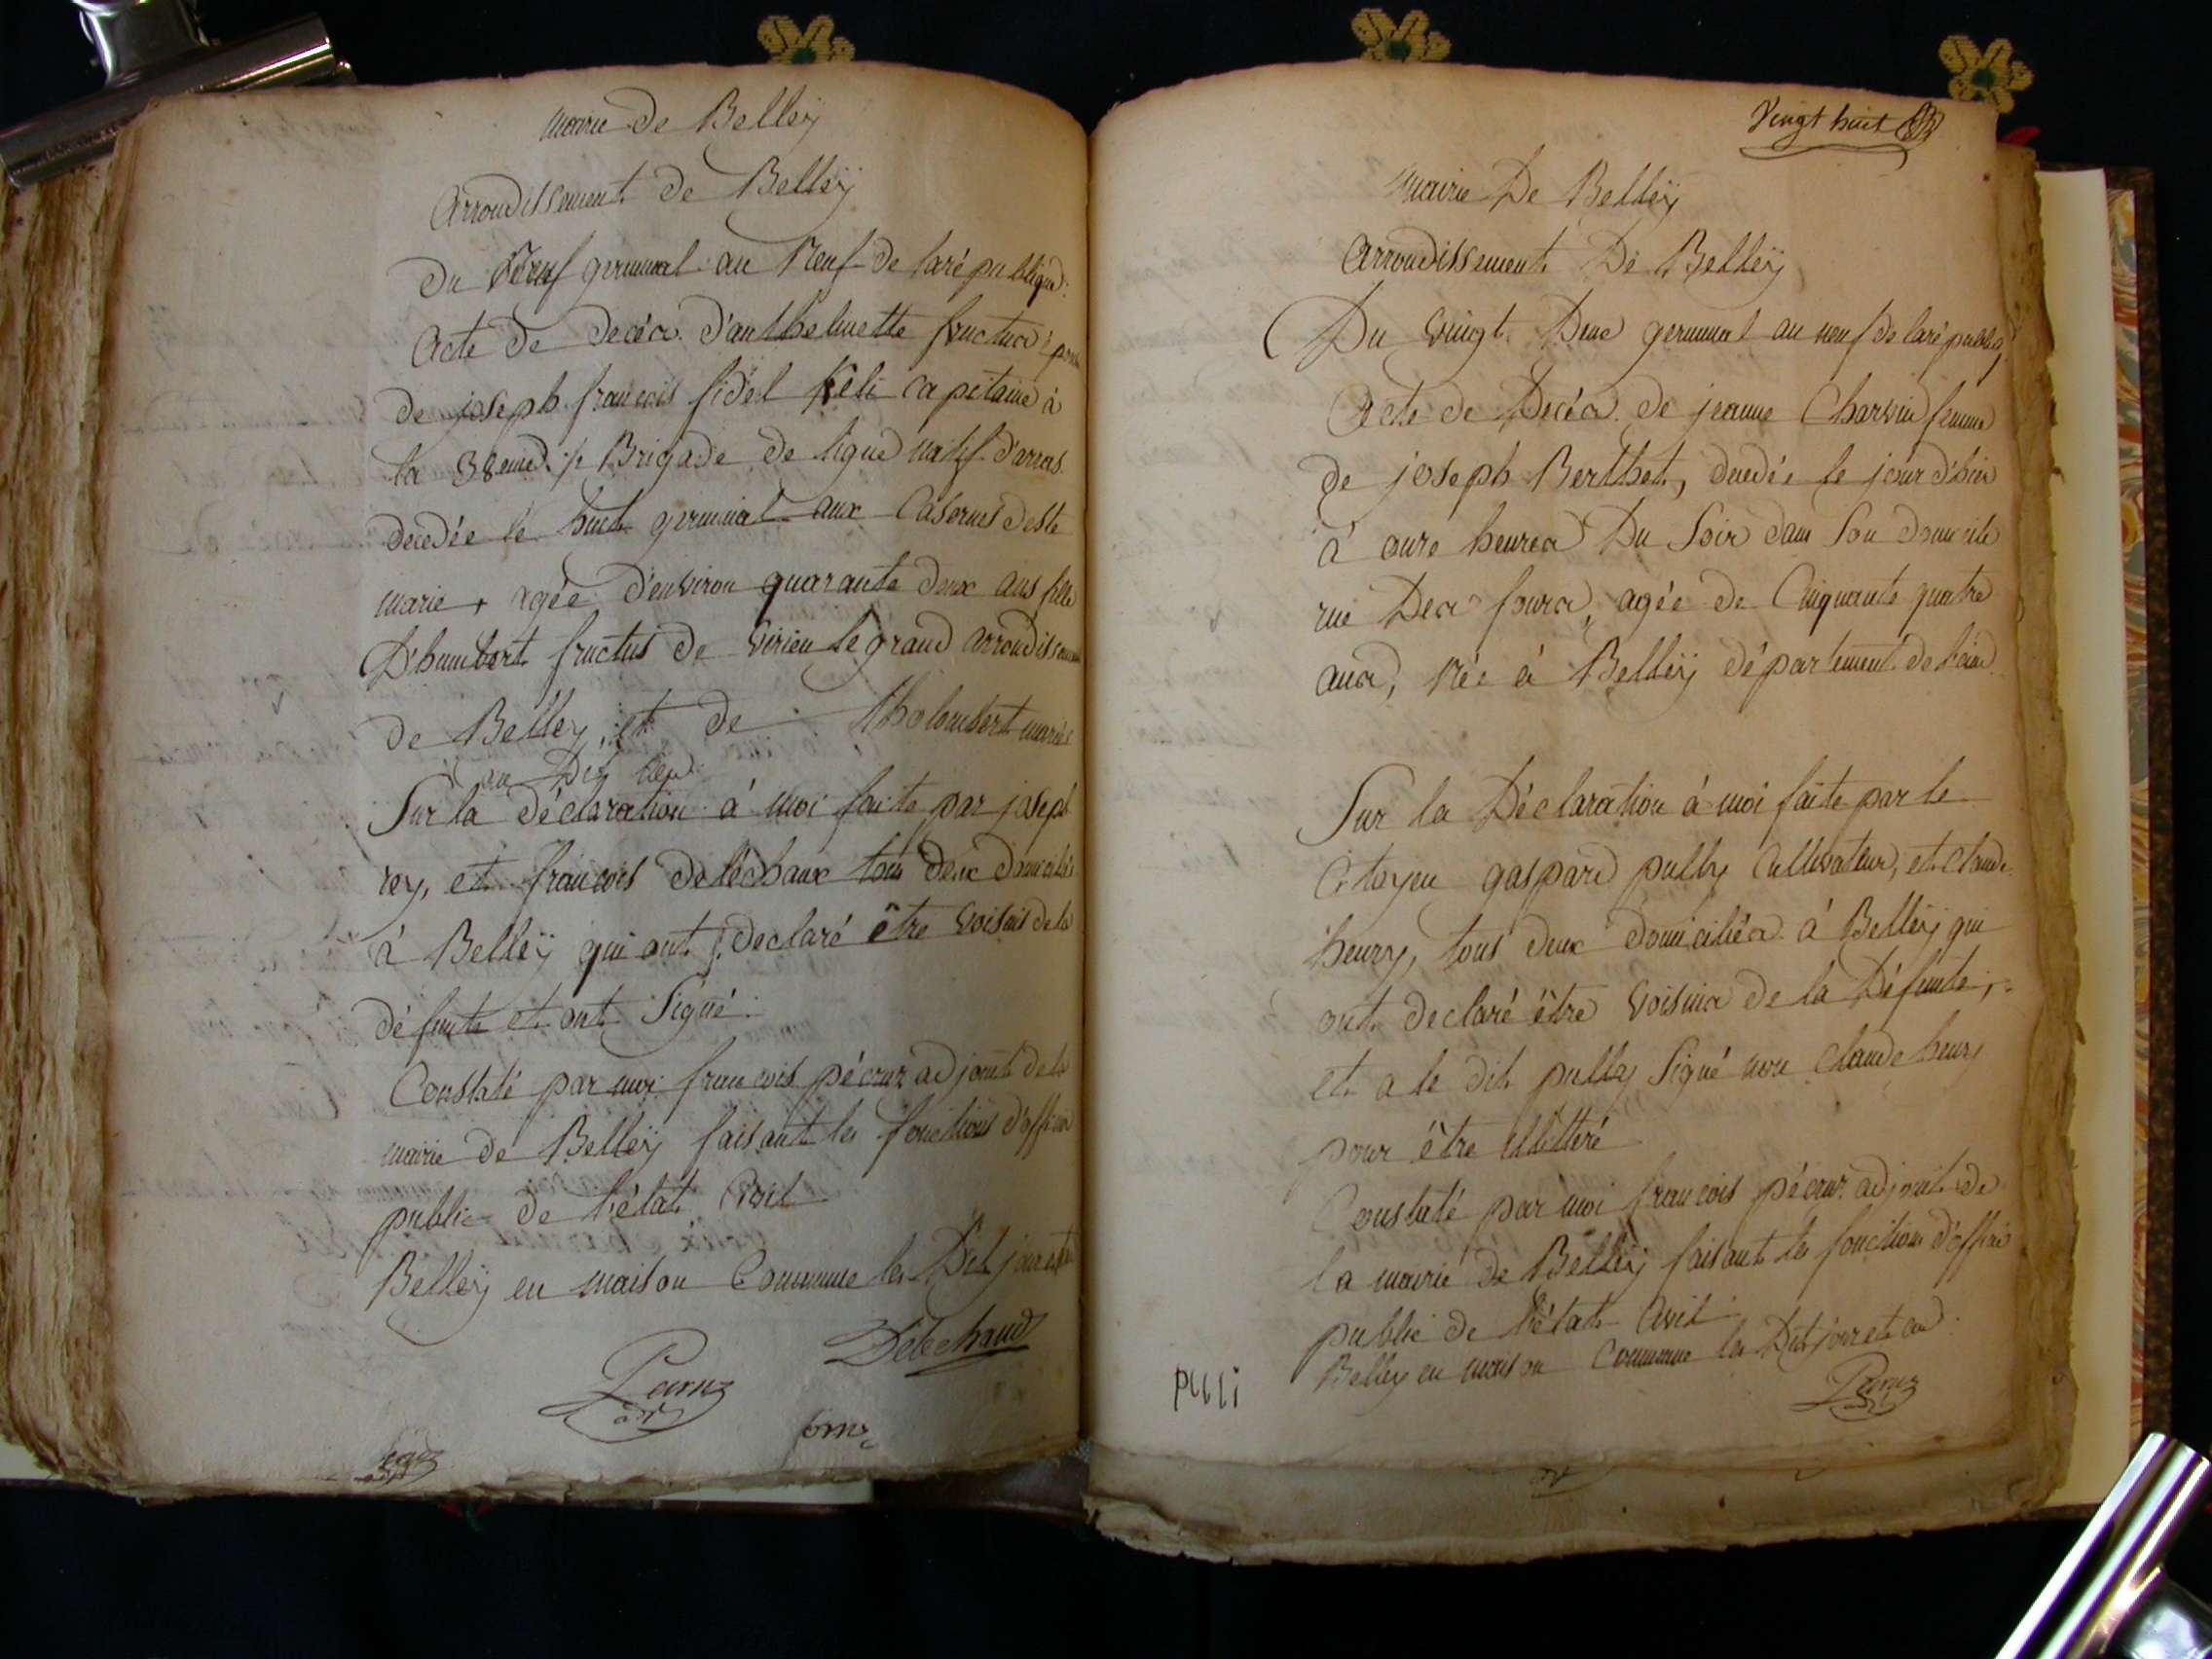 mairie de Belleÿ
Arrondissement de Belleÿ
Du Neuf germinal an Neuf de la république
Acte de decés d'anthelmette fructus épouse
de joseph françois fidel Keli capitaine à
la 38eme Brigade de ligne natif d'arras
decedée le huit germinal aux Casernes deste
marie, agée d'environ quarante deux ans fille
D'humbert fructus de Virieu le grand arrondissement
de Belley, et de tholombert mariés
au Dit lieu
Sur la déclaration à moi faite par joseph
rey, et françois deléchaux tous deux domiciliés
à Belleÿ qui ont declaré être voisins de la
défunte et ont Signé
Constaté par moi françois pécour adjoint de la
mairie de Belleÿ faisant les fonctions d'officier
public de l'état Civil
Belleÿ en maison Commune les Dit jour et an
Delechaud
Vingt huit
mairie De Belleÿ
Arrondissement De Belleÿ
Du Vingt Deux germinal an neuf de la répub
Acte de Decés de jeanne Charvin femme
de joseph Berthet, decedée le jour d'hier
à onze heures Du Soir dans Son domicile
rue Des fours, agée de Cinquante quatre
ans, Née à Belleÿ département de l'ain
Sur la Déclaration à moi faite par le
Citoyen gaspard pully Cultivateur, et claude
henry, tous deux domiciliés à Belleÿ qui
ont declaré être Voisins de la Défunte,
et a le dit pully Signé non claude henry
pour être illétteré
Constaté par moi françois pécour adjoint de
la mairie de Belleÿ faisant les fonctions d'officier
public de l'état Civil
Belley en maison Commune les Dit jour et an
pulli